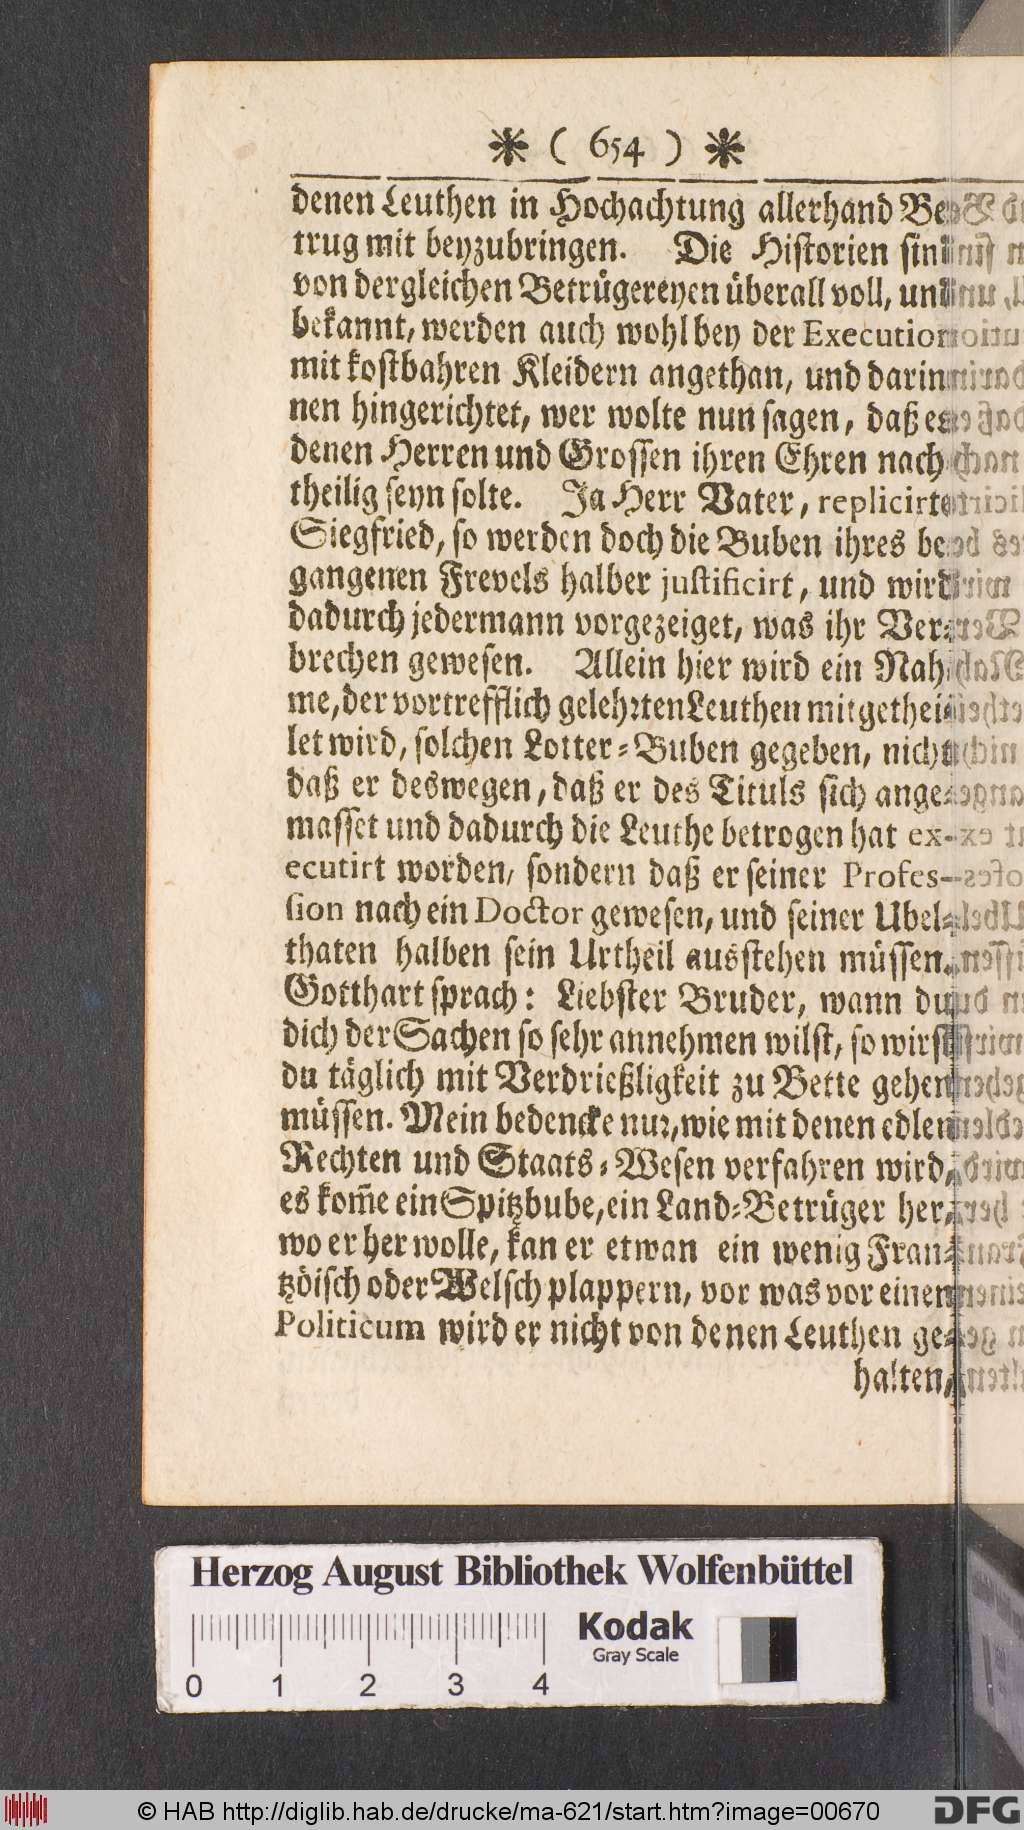 ❋ ( 654 ) ❋
denen Leuthen in Hochachtung allerhand Be-
trug mit beyzubringen. Die Historien sind
von dergleichen Betrügereyen überall voll, und
bekannt, werden auch wohl bey der Execution
mit kostbahren Kleidern angethan, und darin-
nen hingerichtet, wer wolte nun sagen, daß es
denen Herren und Grossen ihren Ehren nach-
theilig seyn solte. Ja Herr Vater, replicirte
Siegfried, so werden doch die Buben ihres be-
gangenen Frevels halber justificirt, und wird
dadurch jedermann vorgezeiget, was ihr Ver-
brechen gewesen. Allein hier wird ein Nah-
me, der vortrefflich gelehrten Leuthen mitgethei-
let wird, solchen Lotter-Buben gegeben, nicht
daß er deswegen, daß er des Tituls sich ange-
masset und dadurch die Leuthe betrogen hat ex-
ecutirt worden, sondern daß er seiner Profes-
sion nach ein Doctor gewesen, und seiner Ubel-
thaten halben sein Urtheil ausstehen müssen.
Gotthart sprach: Liebster Bruder, wann du
dich der Sachen so sehr annehmen wilst, so wirst
du täglich mit Verdrießligkeit zu Bette gehen
müssen. Mein bedencke nur, wie mit denen edlen
Rechten und Staats-Wesen verfahren wird,
es kom̃e ein Spitzbube, ein Land-Betrüger her,
wo er her wolle, kan er etwan ein wenig Fran-
tzöisch oder Welsch plappern, vor was vor einen
Politicum wird er nicht von denen Leuthen ge-
halten,
Herzog August Bibliothek Wolfenbüttel
Kodak
Gray Scale
0 1 2 3 4
© HAB http://diglib.hab.de/drucke/ma-621/start.htm?image=00670
DFG